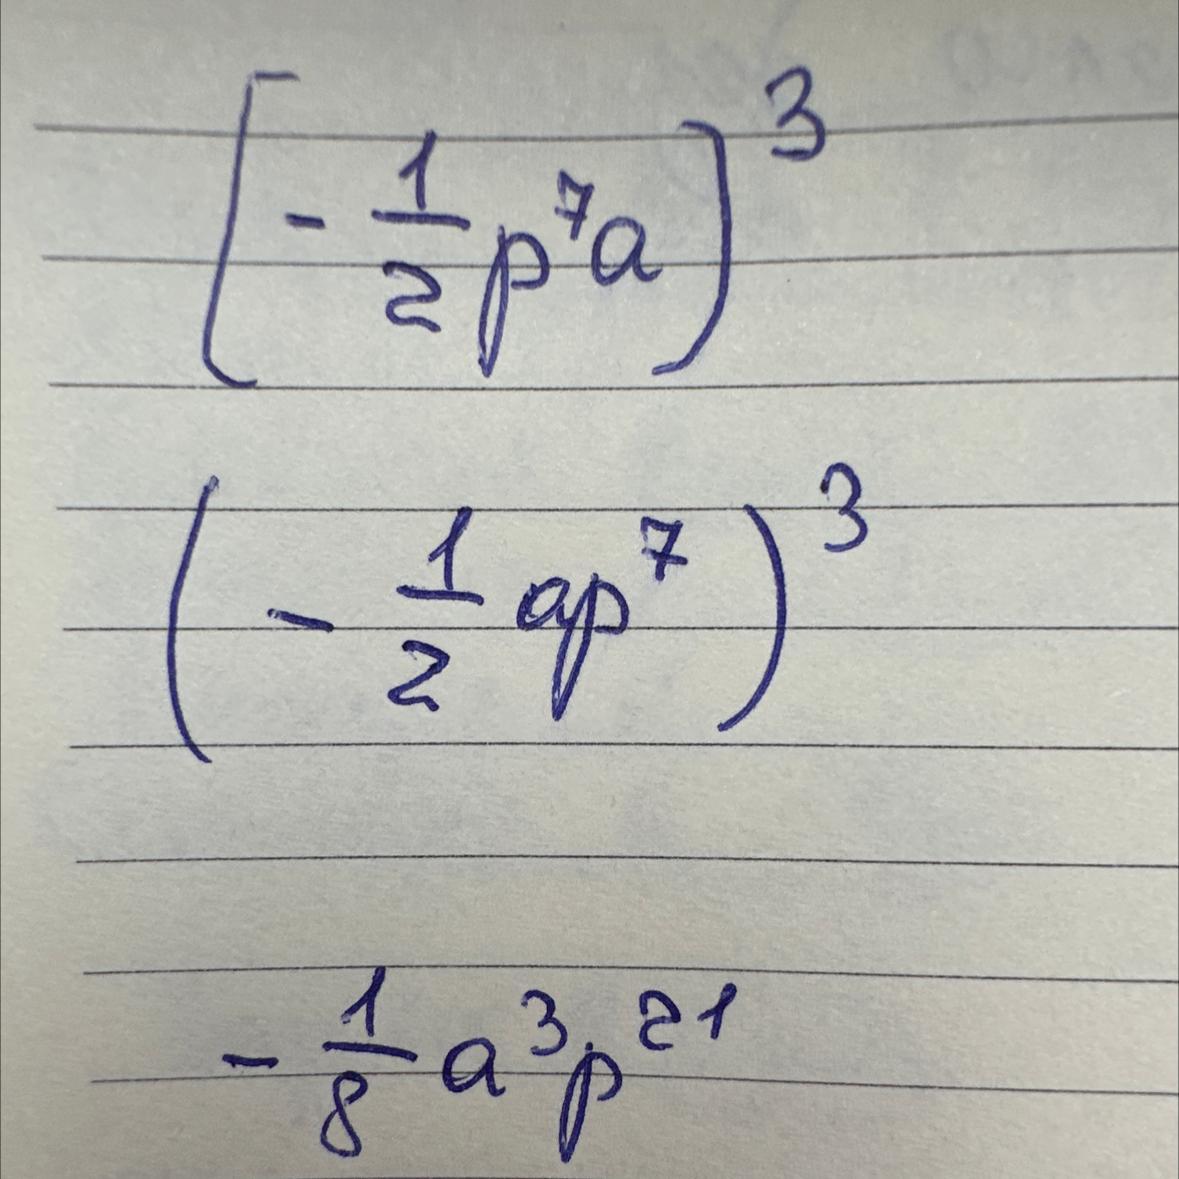 [-\frac{1}{2}p^7a)^3
(-\frac{1}{2}ap^7)^3
-\frac{1}{8}a^3p^{21}